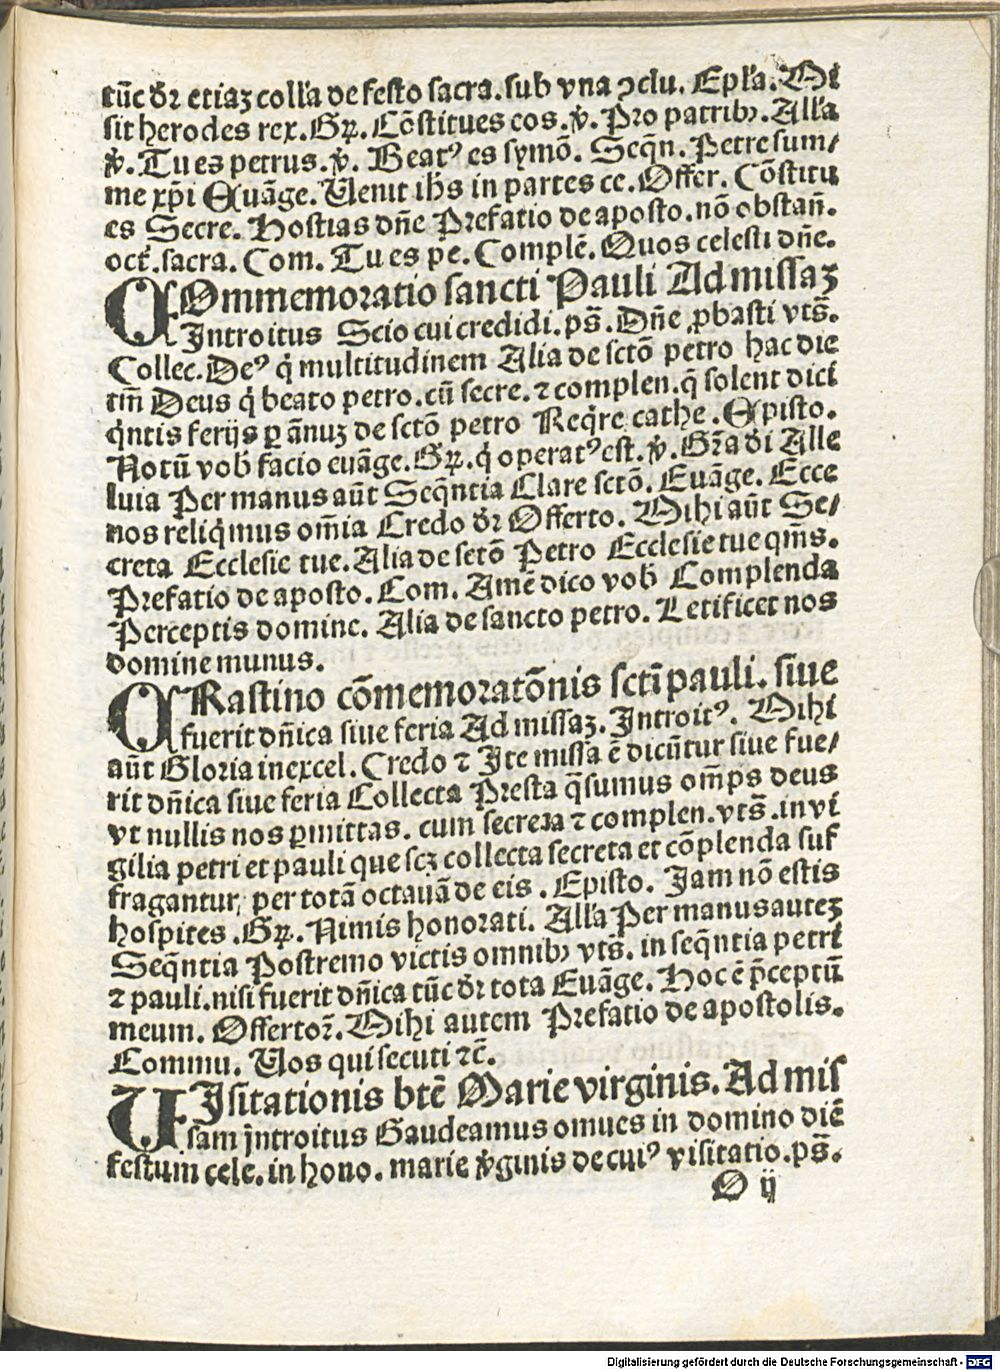 tūc dr̄ etiaꝫ coll'a de festo sacra. sub vna ↄclu. Epl'a. Mi
sit herodes rex. Gꝝ. Cōstitues eos. v̄. Pro patribꝰ. All'a
v̄. Tu es petrus. v̄. Beatꝰ es symō. Seqn̄. Petre sum/
me xp̄i Euāge. Uenit ih̄s in partes ce. Offer. Cōstitu
es Secre. Hostias dn̄e Prefatio de aposto. nō obstan̄.
oct̄. sacra. Com. Tu es pe. Complē. Quos celesti dn̄e.
COmmemoratio sancti Pauli Ad missaꝫ
Introitus Scio cui credidi. ps̄. Dn̄e ꝓbasti vts̄.
Collec. Deꝰ q̇ multitudinem Alia de sctō petro hac die
tm̄ Deus q̇ beato petro. cū secre. ⁊ complen. q̄ solent dici
q̇ntis ferijs ꝑ ānuꝫ de sctō petro Req̇re cathe. Episto.
Notū vob̄ facio euāge. Gꝝ. q̇ operatꝰ est. v̄. Gr̄a di Alle
luia Per manus aūt Seq̄ntia Clare sctō. Euāge. Ecce
nos reliq̇mus om̄ia Credo dr̄ Offerto. Mihi aūt Se/
creta Ecclesie tue. Alia de sctō Petro Ecclesie tue qm̄s.
Prefatio de aposto. Com. Amē dico vob̄ Complenda
Perceptis domine. Alia de sancto petro. Letificet nos
domine munus.
CRastino cōmemoratōnis sctī pauli. siue
fuerit dn̄ica siue feria Ad missaꝫ. Introitꝰ. Mihi
aūt Gloria in excel. Credo ⁊ Ite missa ē dicūtur siue fue/
rit dn̄ica siue feria Collecta Presta q̄sumus om̄ps deus
vt nullis nos ꝑmittas. cum secreta ⁊ complen. vts̄. in vi
gilia petri et pauli que scꝫ collecta secreta et cōplenda suf
fragantur, per totā octauā de eis. Episto. Jam nō estis
hospites. Gꝝ. Nimis honorati. All'a Per manus auteꝫ
Seq̄ntia Postremo victis omnibꝰ vts̄. in seq̄ntia petri
⁊ pauli. nisi fuerit dn̄ica tūc dr̄ tota Euāge. Hoc ē p̄ceptū
meum. Offertoꝛ̄. Mihi autem Prefatio de apostolis.
Commu. Uos qui secuti ⁊c̄.
UIsitationis btē Marie virginis. Ad mis
sam introitus Gaudeamus omues in domino diē
festum cele. in hono. marie v̇ginis de cuiꝰ visitatio. ps̄.
O ij
Digitalisierung gefördert durch die Deutsche Forschungsgemeinschaft - DFG